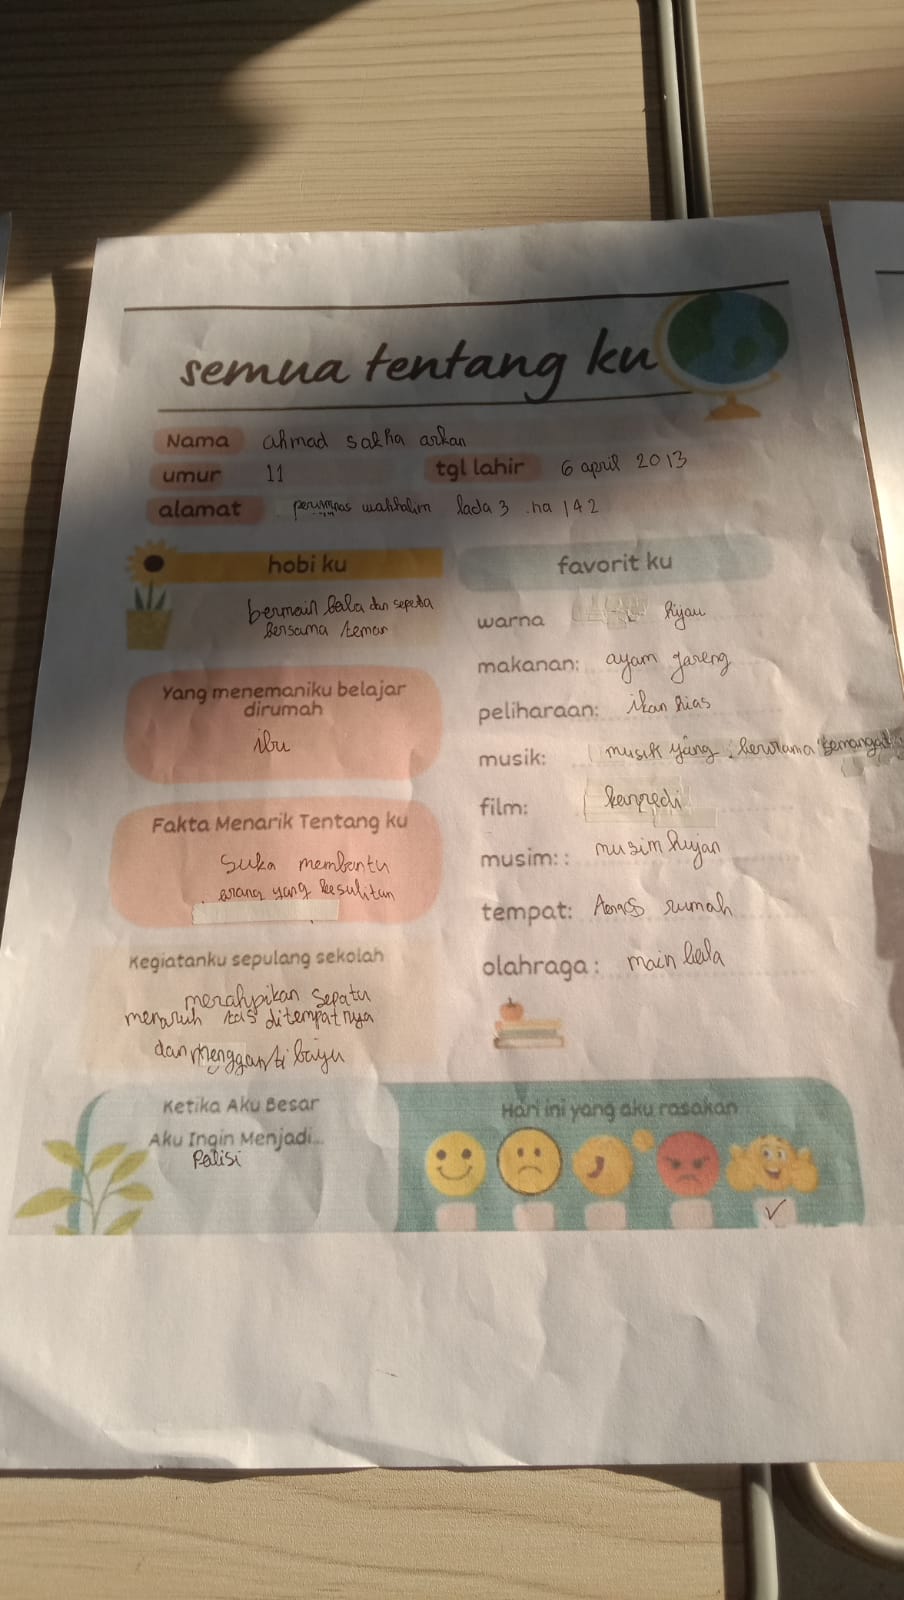 semua tentang ku
Nama ahmad sakha arkan
umur 11 tgl lahir 6 april 2013
alamat perumnas wahhalim lada 3 .na 142
hobi ku
bermain bola dan sepeda
bersama teman
Yang menemaniku belajar
dirumah
ibu
Fakta Menarik Tentang ku
Suka membantu
orang yang kesulitan
Kegiatanku sepulang sekolah
merahpikan sepatu
menaruh tas ditempatnya
dan mengganti baju
favorit ku
warna hijau
makanan: ayam goreng
peliharaan: ikan hias
musik: musik yang berirama semangat
film:
musim:: musim hujan
tempat: rumah
olahraga: main bola
Ketika Aku Besar
Aku Ingin Menjadi...
Polisi
Hari ini yang aku rasakan